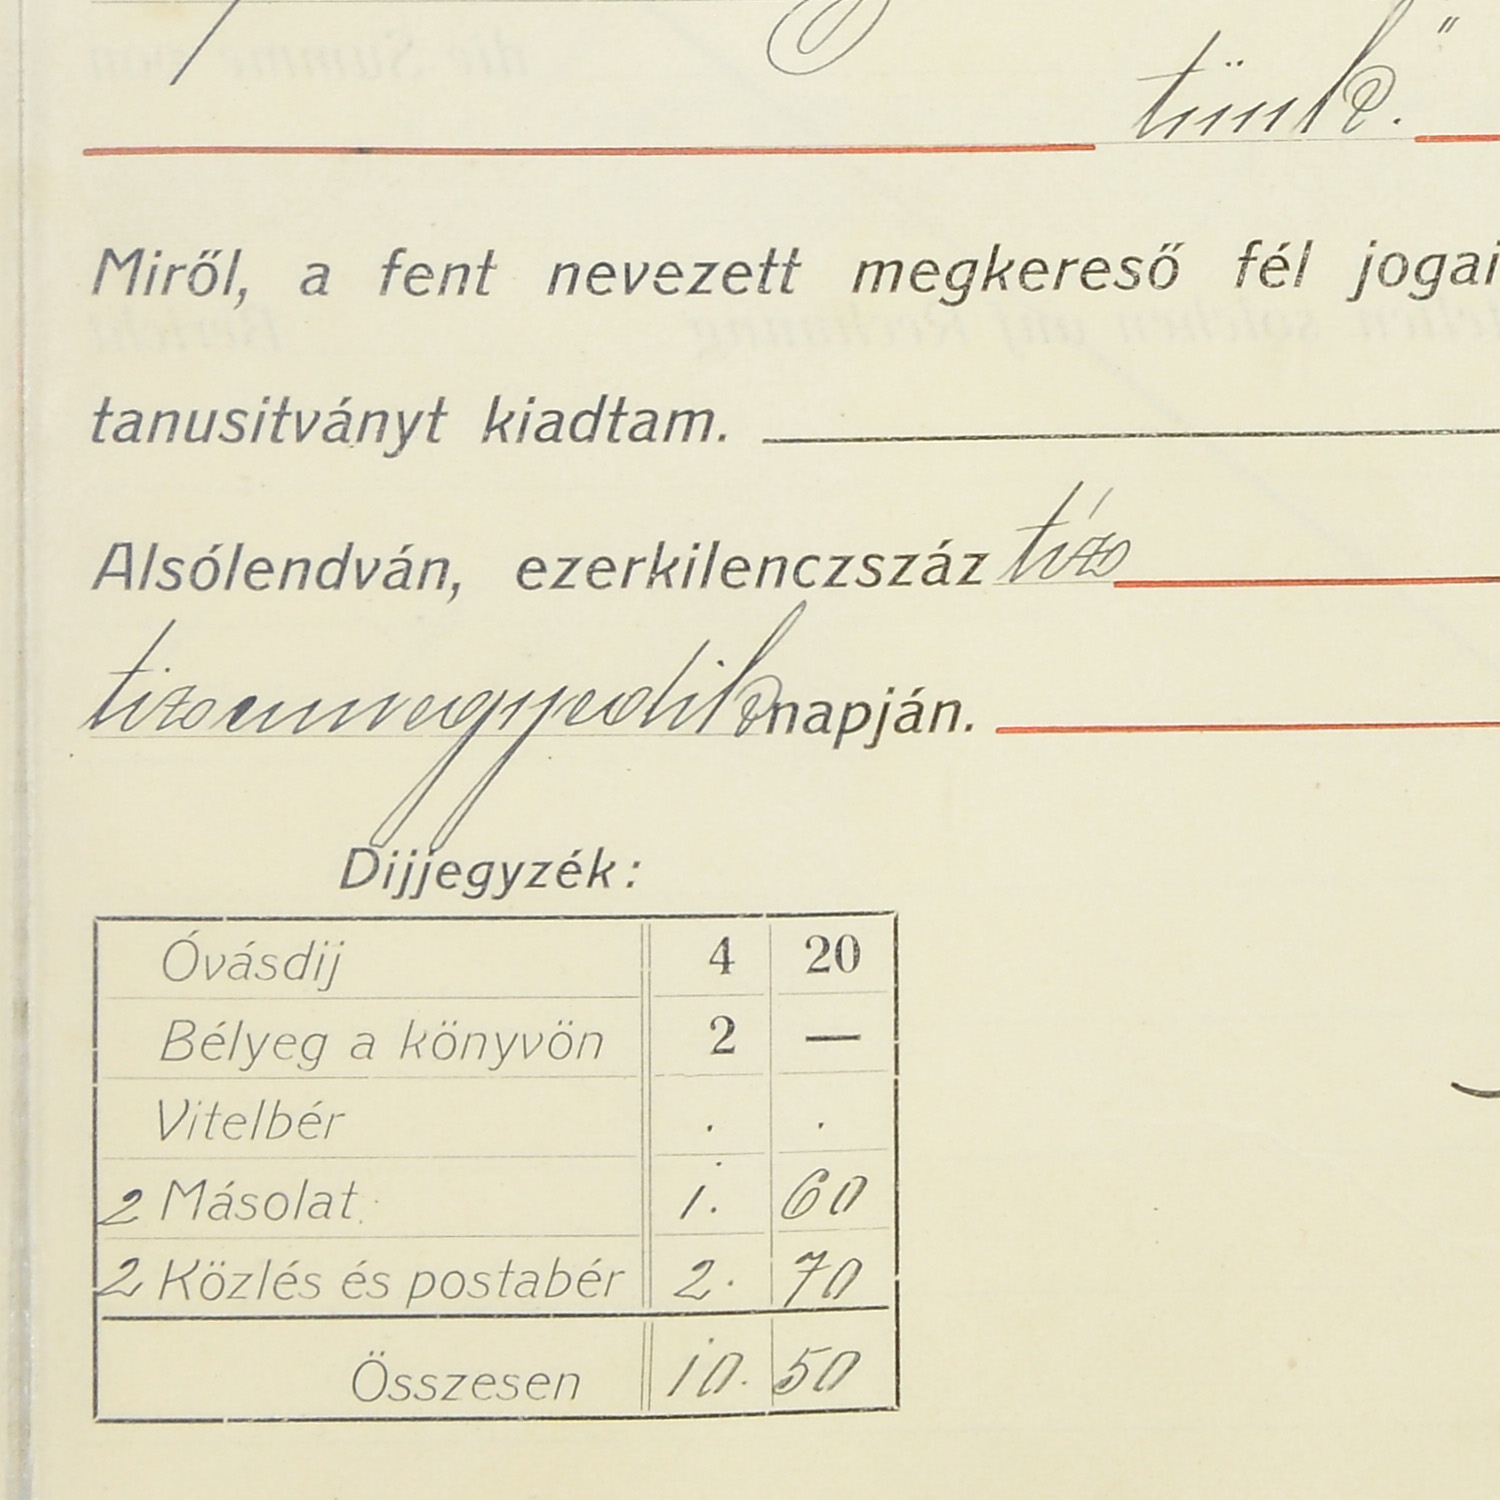 tünk."
Miről, a fent nevezett megkereső fél jogai
tanusitványt kiadtam.
Alsólendván, ezerkilenczszáz tíz
tizennegyedik napján.
Dijjegyzék:
Óvásdij 4 20
Bélyeg a könyvön 2 —
Vitelbér . .
2 Másolat 1. 60
2 Közlés és postabér 2. 70
Összesen 10. 50